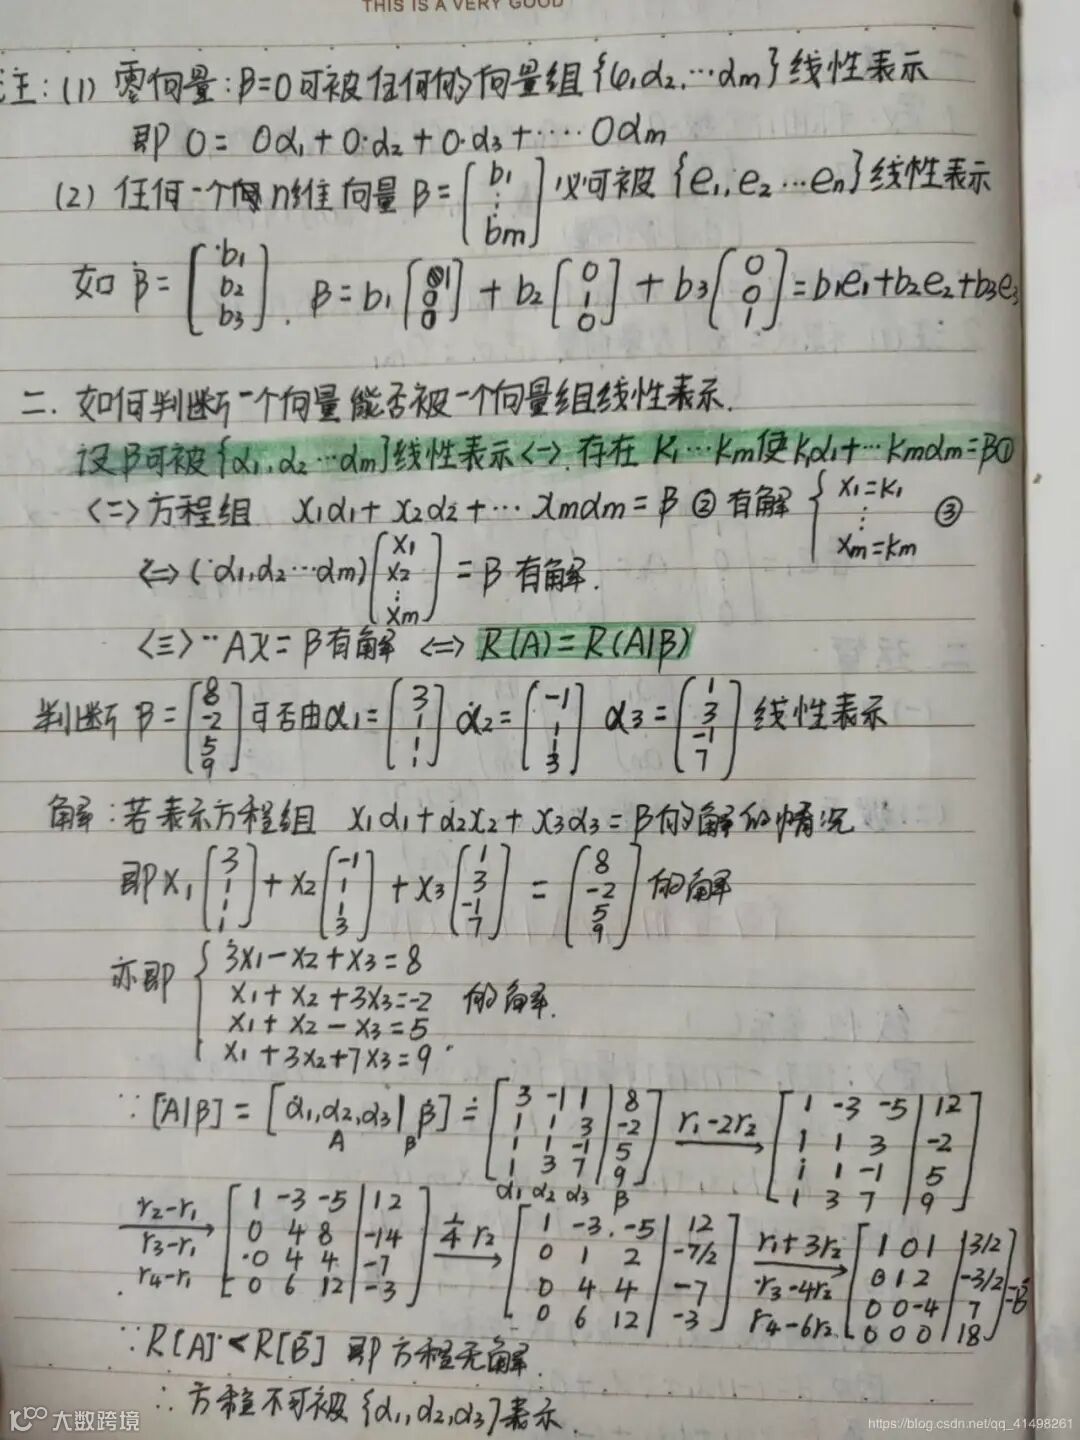 THIS IS A VERY GOOD
注：(1) 零向量：β=0可被任何的向量组{α1,α2,…αm}线性表示
即 0 = 0α1+0·α2+0·α3+……0αm
(2) 任何一个 n维向量 β=[b1 ⋮ bm] 必可被 {e1,e2…en}线性表示
如 β=[b1 b2 b3]. β=b1[1 0 0]+b2[0 1 0]+b3[0 0 1]=b1e1+b2e2+b3e3
二. 如何判断一个向量能否被一个向量组线性表示.
设β可被{α1,α2…αm}线性表示<—>.存在 K1…Km使K1α1+…Kmαm=β①
<=>方程组 x1α1+x2α2+…xmαm=β ② 有解 { x1=K1 ⋮ xm=Km ③
<=>(α1,α2…αm)[x1 x2 ⋮ xm]=β 有解.
<三>··AX=β有解 <=> R(A)=R(A|β)
判断 β=[8 -2 5 9]可否由α1=[3 1 1 1] α2=[-1 1 1 3] α3=[1 3 -1 7] 线性表示
解：若表示方程组 x1α1+α2x2+x3α3=β的解的情况
即x1[3 1 1 1]+x2[-1 1 1 3]+x3[1 3 -1 7]=[8 -2 5 9]的解
亦即 { 3x1-x2+x3=8
x1+x2+3x3=-2 的解.
x1+x2-x3=5
x1+3x2+7x3=9
∵[A|β]=[α1,α2,α3|β]=[3 -1 1|8 1 1 3|-2 1 1 -1|5 1 3 7|9] r1-2r2→ [1 -3 -5|12 1 1 3|-2 1 1 -1|5 1 3 7|9]
A β α1 α2 α3 β
r2-r1 r3-r1 r4-r1→ [1 -3 -5|12 0 4 8|-14 0 4 4|-7 0 6 12|-3] 1/4 r2→ [1 -3 -5|12 0 1 2|-7/2 0 4 4|-7 0 6 12|-3] r1+3r2 r3-4r2 r4-6r2→ [1 0 1|3/2 0 1 2|-3/2 0 0 -4|7 0 0 0|18]
∵R[A]<R[B̄] 即方程无解.
∴方程不可被{α1,α2,α3}表示.
大数跨境
https://blog.csdn.net/qq_41498261